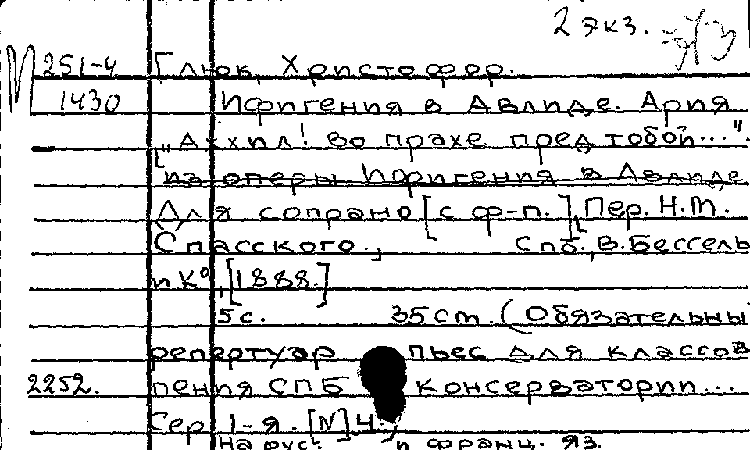 2 экз.
М 251-4 Глюк, Христофор.
1430 Ифигения в Авлиде. Ария
„Ахилл! во прахе пред тобой..."
из оперы Ифигения в Авлиде
Для сопрано [с ф-п.], Пер. Н.М.
Спасского., Спб., В. Бессель
и К°, [1888.]
5 с. 35 cm. (Обязательны
репертуар пьес для классов
2252. пения СПБ консерватории...
Сер. 1-я. [N] 4.)
На рус. и франц. яз.